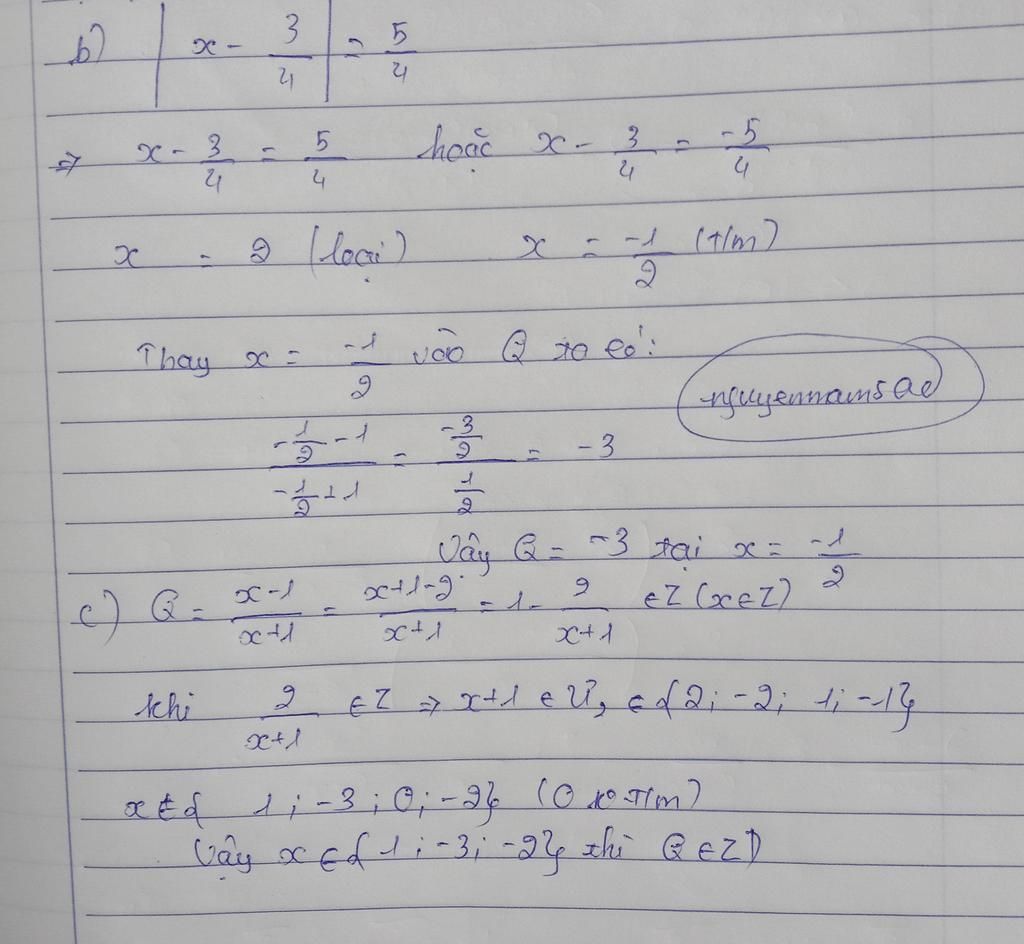 b) |x - 3/4| = 5/4
⇒ x - 3/4 = 5/4 hoặc x - 3/4 = -5/4
x = 2 (loại) x = -1/2 (t/m)
Thay x = -1/2 vào Q ta có:
nguyennam5a
(-1/2 - 1)/(-1/2 + 1) = (-3/2)/(1/2) = -3
Vậy Q = -3 tại x = -1/2
c) Q = (x-1)/(x+1) = (x+1-2)/(x+1) = 1 - 2/(x+1) ∈ Z (x ∈ Z)
khi 2/(x+1) ∈ Z ⇒ x+1 ∈ Ư2 ∈ {2; -2; 1; -1}
x ∈ { 1; -3; 0; -2} (0 ko T/m)
Vậy x ∈ {1; -3; -2} thì Q ∈ Z)